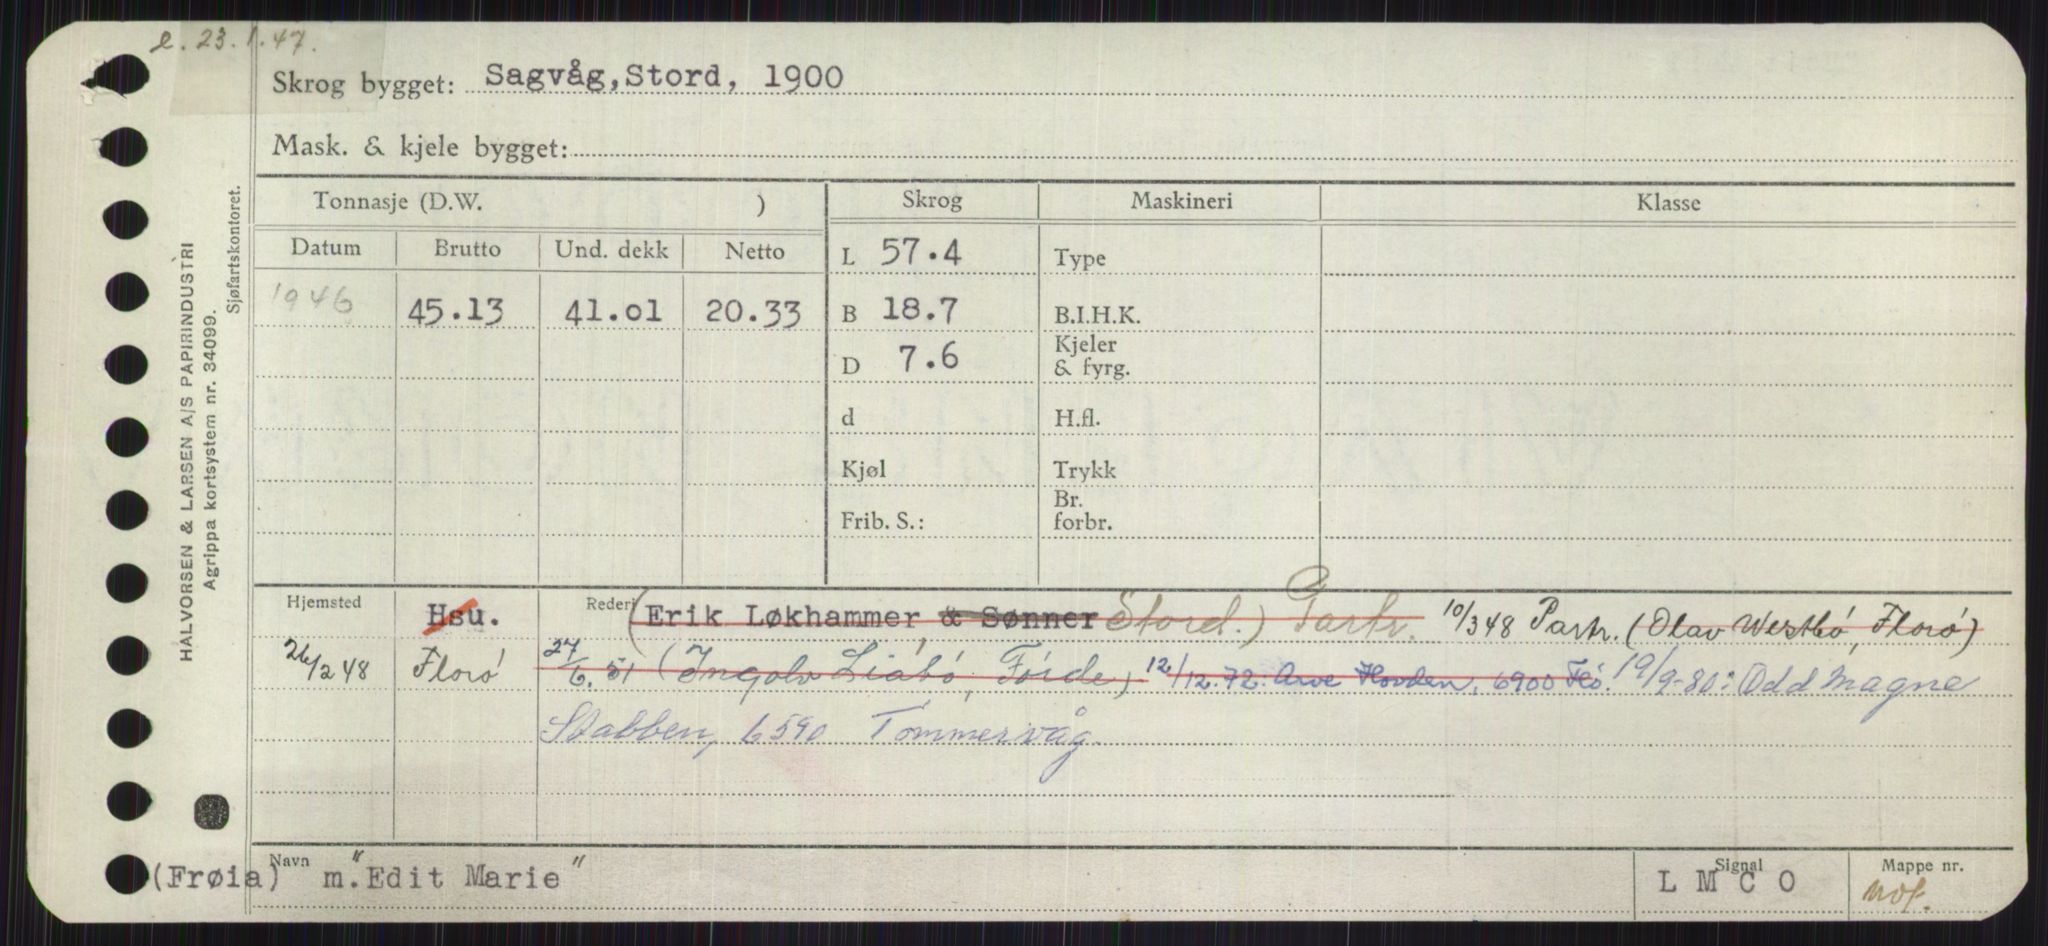 e. 23.1.47.
Skrog bygget: Sagvåg, Stord, 1900
Mask. & kjele bygget:
Tonnasje (D.W. ) Skrog Maskineri Klasse
Datum Brutto Und. dekk Netto L 57.4 Type
1946 45.13 41.01 20.33 B 18.7 B.I.H.K.
D 7.6 Kjeler & fyrg.
d H.fl.
Kjøl Trykk
Frib. S.: Br. forbr.
Hjemsted Hsu. Rederi (Erik Løkhammer & Sønner Stord.) Partr. 10/3 48 Partr. (Olav Westbö, Florö)
26/2 48 Florö 27/6. 51 (Ingolv Liabö, Förde) 12/12.72. Arve Hovden, 6900 Flö. 19/9-80: Odd Magne
Stabben, 6590 Tömmervåg.
Navn (Frøia) m. "Edit Marie" Signal L M C O Mappe nr. mof.
HALVORSEN & LARSEN A/S PAPIRINDUSTRI
Agrippa kortsystem nr. 34099.
Sjøfartskontoret.